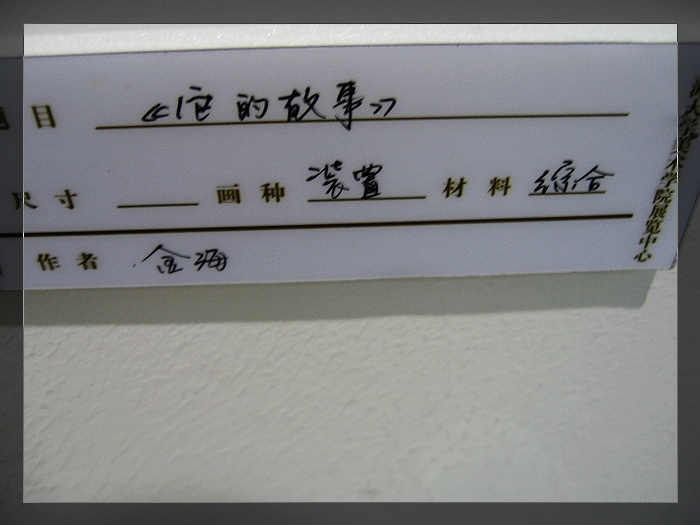 题目 《 的故事》
尺寸 画种 装置 材料 综合
作者 金海
海大学美术学院展览中心